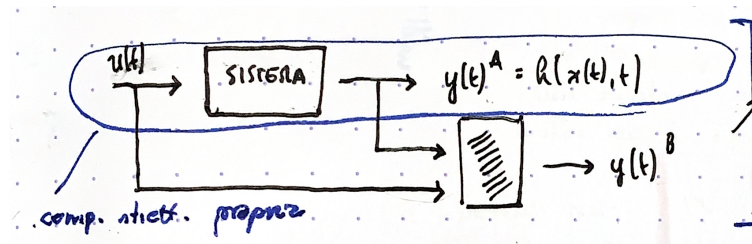 u(t)
SISTEMA
y(t)^A = h(x(t), t)
y(t)^B
comp. strett. propria